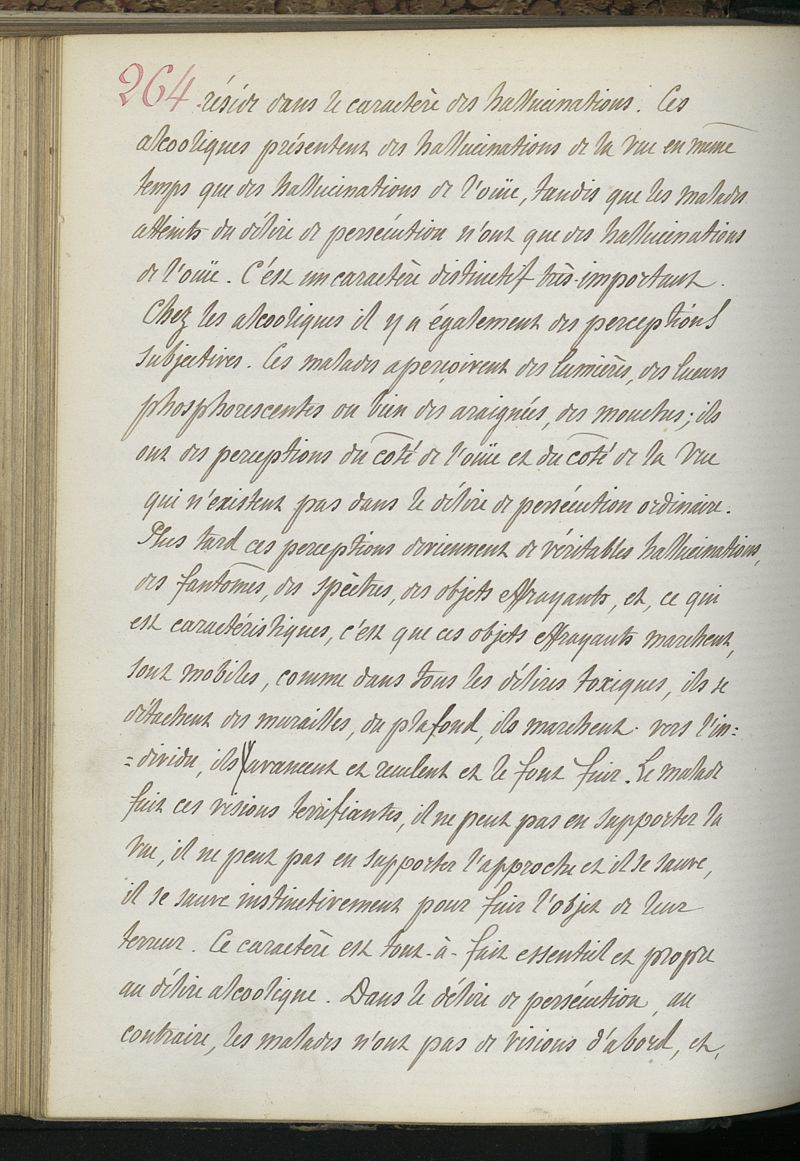 264
réside dans le caractère des hallucinations. Ces
alcooliques présentent des hallucinations de la vue en même
temps que des hallucinations de l'ouïe, tandis que les malades
atteints du délire de persécution n'ont que des hallucinations
de l'ouïe. C'est un caractère distinctif très-important.
Chez les alcooliques il y a également des perceptions
subjectives. Ces malades aperçoivent des lumières, des lueurs
phosphorescentes ou bien des araignées, des mouches; ils
ont des perceptions du côté de l'ouïe et du côté de la vue
qui n'existent pas dans le délire de persécution ordinaire.
Plus tard ces perceptions deviennent de véritables hallucinations,
des fantômes, des spèctres, des objets effrayants, et, ce qui
est caractéristiques, c'est que ces objets effrayants marchent,
sont mobiles, comme dans tous les délires toxiques, ils se
détachent des murailles, du plafond, ils marchent vers l'in=
=dividu, ils avancent et reculent et le font fuir. Le malade
fuit ces visions terrifiantes, il ne peut pas en supporter la
vue, il ne peut pas en supporter l'approche et il se sauve,
il se sauve instinctivement pour fuir l'objet de leur
terreur. Ce caractère est tout-à-fait essentiel et propre
au délire alcoolique. Dans le délire de persécution, au
contraire, les malades n'ont pas de visions d'abord, et,